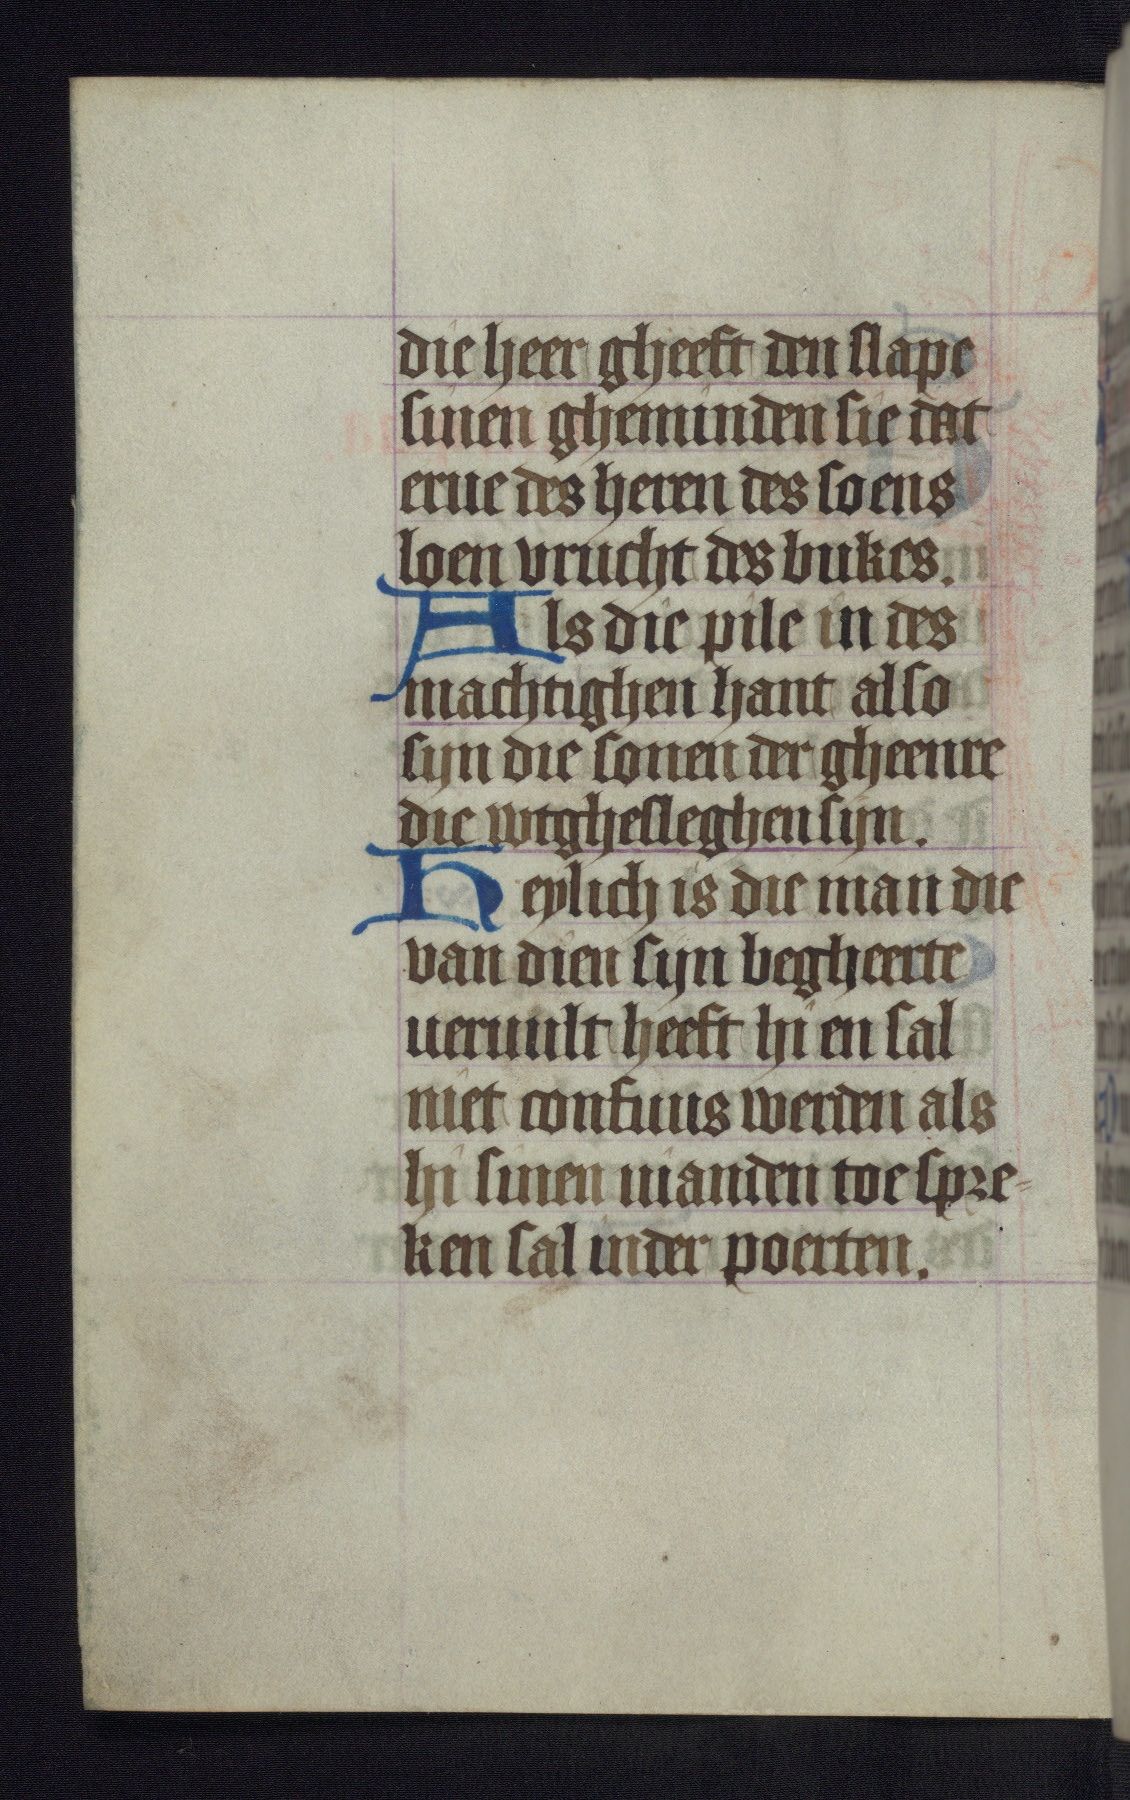 die heer gheeft den slape
sinen gheminden sie dat
erue des heren des soens
loen vrucht des bukes.
Als die pile in des
machtighen hant also
sijn die sonen der gheenre
die wtghesleghen sijn.
Heylich is die man die
van dien sijn begheerte
ueruult heeft hi en sal
niet confuus werden als
hi sinen uianden toe spre-
ken sal inder poerten.